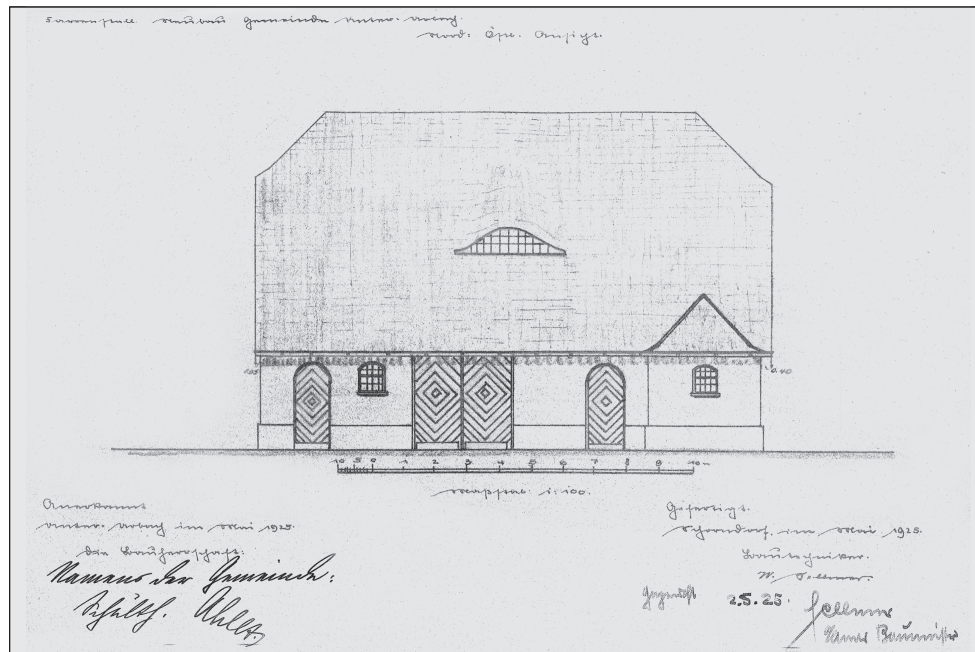 Farrenstall Neubau Gemeinde Unter-Urbach.
Nord: Östl. Ansicht.
0.40
10 5 0 1 2 3 4 5 6 7 8 9 10 m
Maßstab: 1:100.
Anerkannt
Unter-Urbach im Mai 1925.
Die Bauherrschaft:
Namens der Gemeinde:
Schulth.
Gefertigt.
Schorndorf, im Mai 1925.
Bautechniker.
W.
2.5.25.